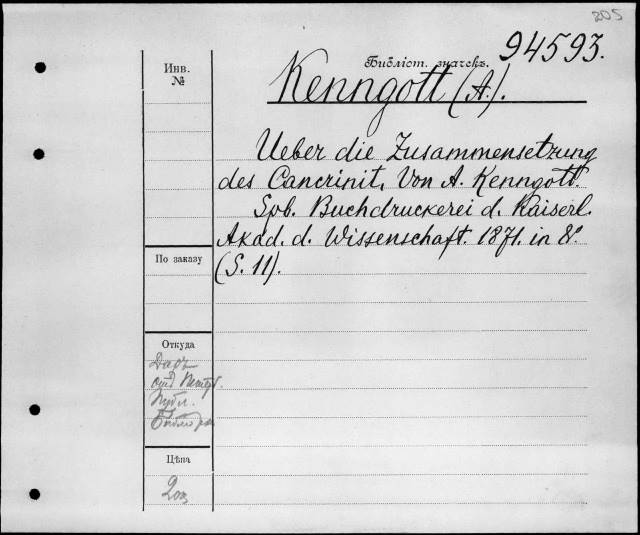 205
Инв.
№
Библіот. значекъ. 94593.
Kenngott (A.).
Ueber die Zusammensetzung
des Cancrinit. Von A. Kenngott.
Spb. Buchdruckerei d. Kaiserl.
Akad. d. Wissenschaft. 1871. in 8º.
(S. 11).
По заказу
Откуда
Даръ
Публ.
Цѣна